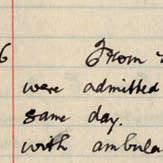 6 From
were admitted
same day.
with ambula